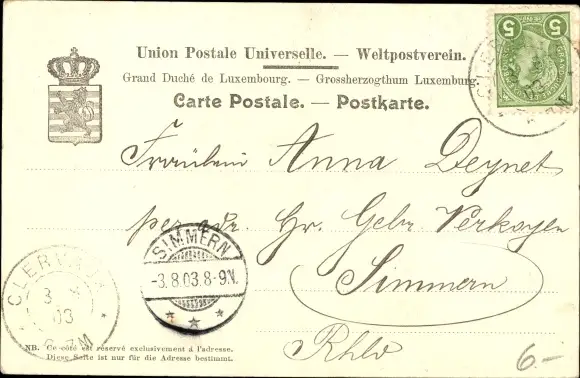 Union Postale Universelle. — Weltpostverein.
Grand Duché de Luxembourg. — Grossherzogthum Luxemburg.
Carte Postale. — Postkarte.
5 5
Fräulein Anna Deynet
per adr. Hr. Gebr. Verkoyen
Simmern
Rhld
SIMMERN
-3.8.03.8-9.N.
CLERV
3
03
NB. Ce côté est réservé exclusivement à l'adresse.
Diese Seite ist nur für die Adresse bestimmt.
6.-